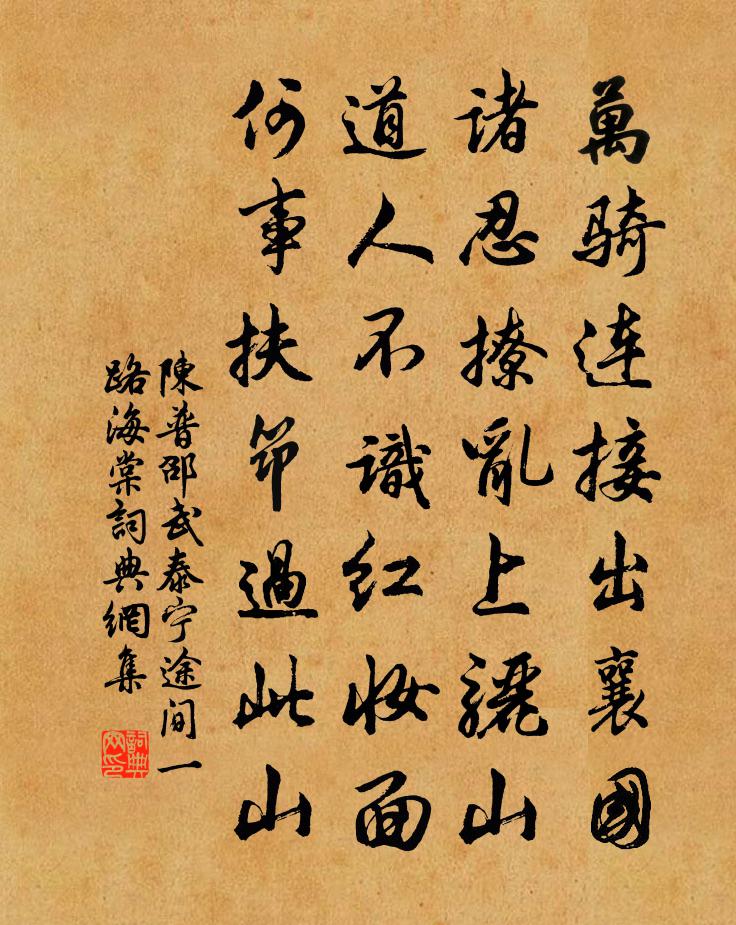 萬騎連接出襄國
諸忍撩亂上驪山
道人不識紅妝面
何事扶筇過此山
陳普邵武泰宁途間一
路海棠詞典網集
詞典网印